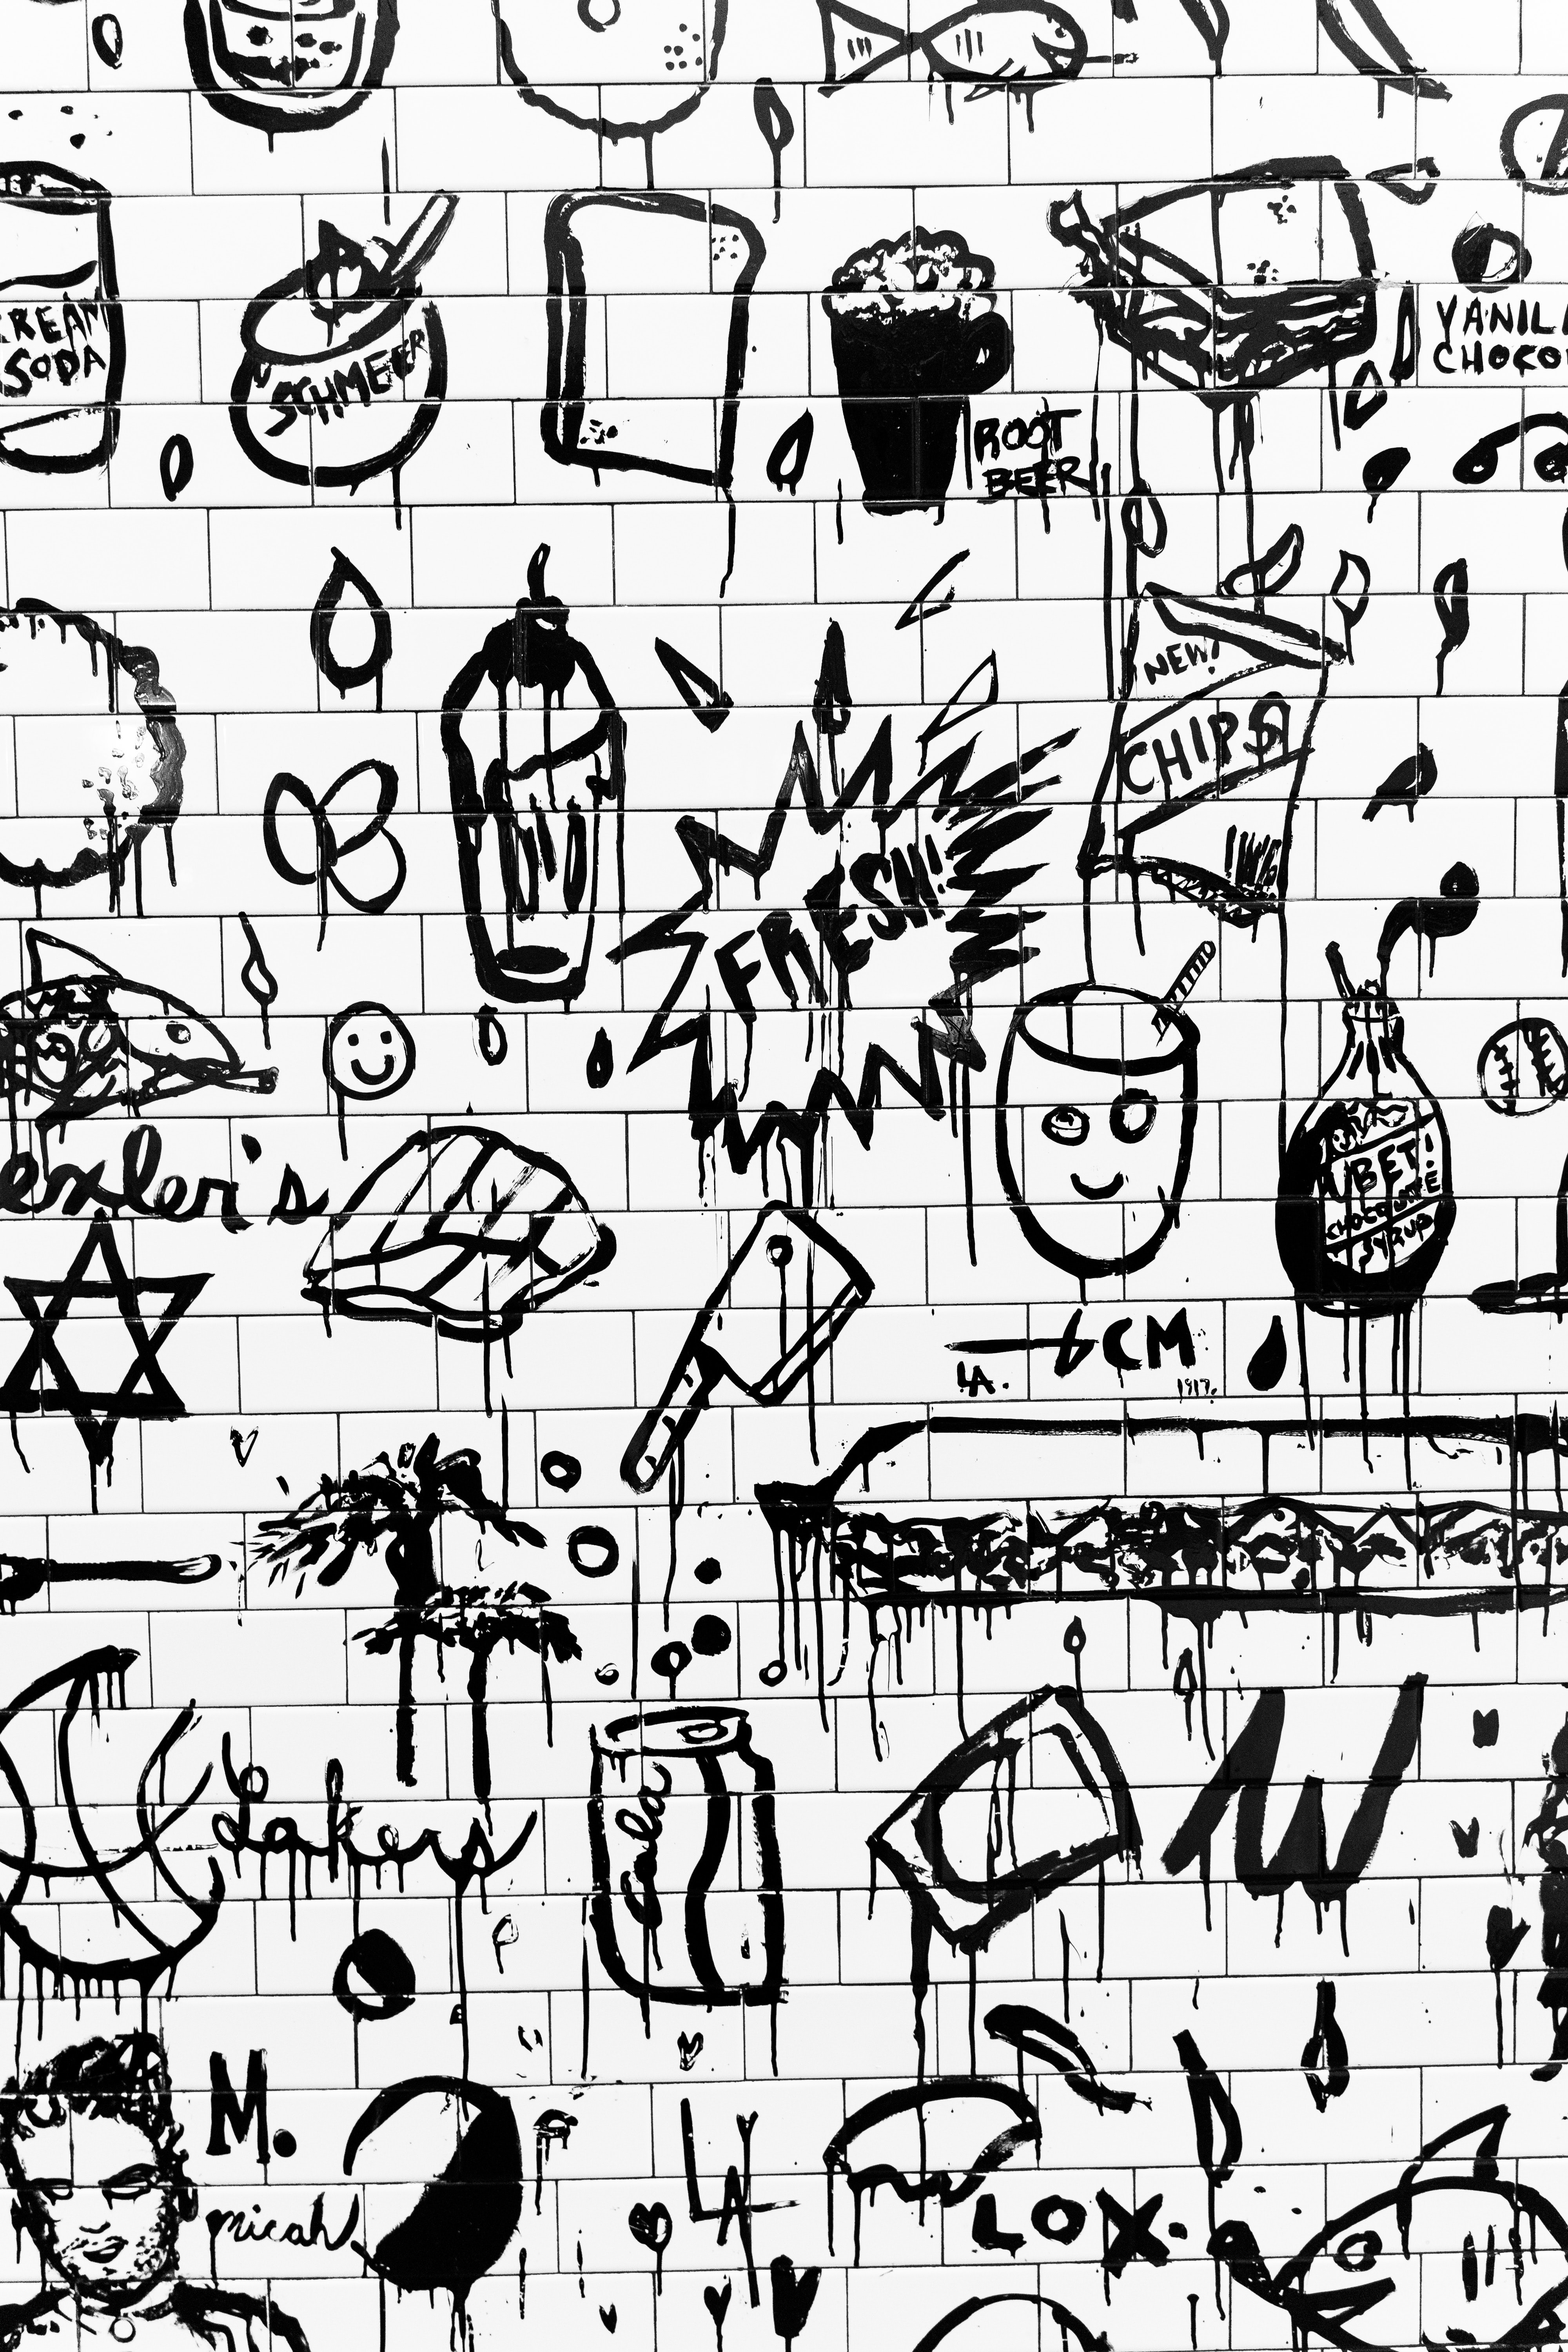 CREAM
SODA
SCHMEER
ROOT
BEER
VANIL
CHOCO
NEW!
CHIPS
FRESH!
U BET!
CHOCOLATE
SYRUP
exler's
CM
LA.
Lakers
Cola
W
M.
micah
LA
LOX.